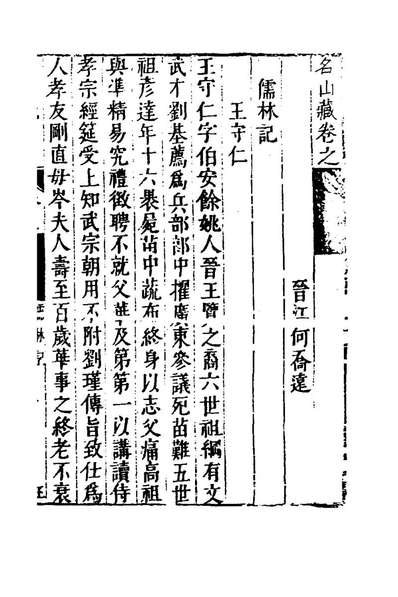 名山藏卷之
晉江何喬遠
儒林記
王守仁
王守仁字伯安餘姚人晉王覽之裔六世祖綱有文
武才劉基薦為兵部郎中擢廣東參議死苗難五世
祖彥達年十六裹屍苗中蔬布終身以志父痛高祖
與準精易究禮徵聘不就父華及第第一以講讀侍
孝宗經筵受上知武宗朝用不附劉瑾傳旨致仕為
人孝友剛直毋岑夫人壽至百歲華事之終老不衰